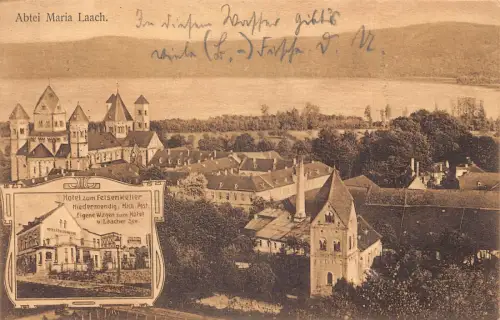 Abtei Maria Laach.
In diesem Wasser gibt's
viele Fische d. N.
Hotel zum Felsenkeller
Niedermendig, Rhld. Post
Eigene Wagen zum Hotel
u. Laacher See